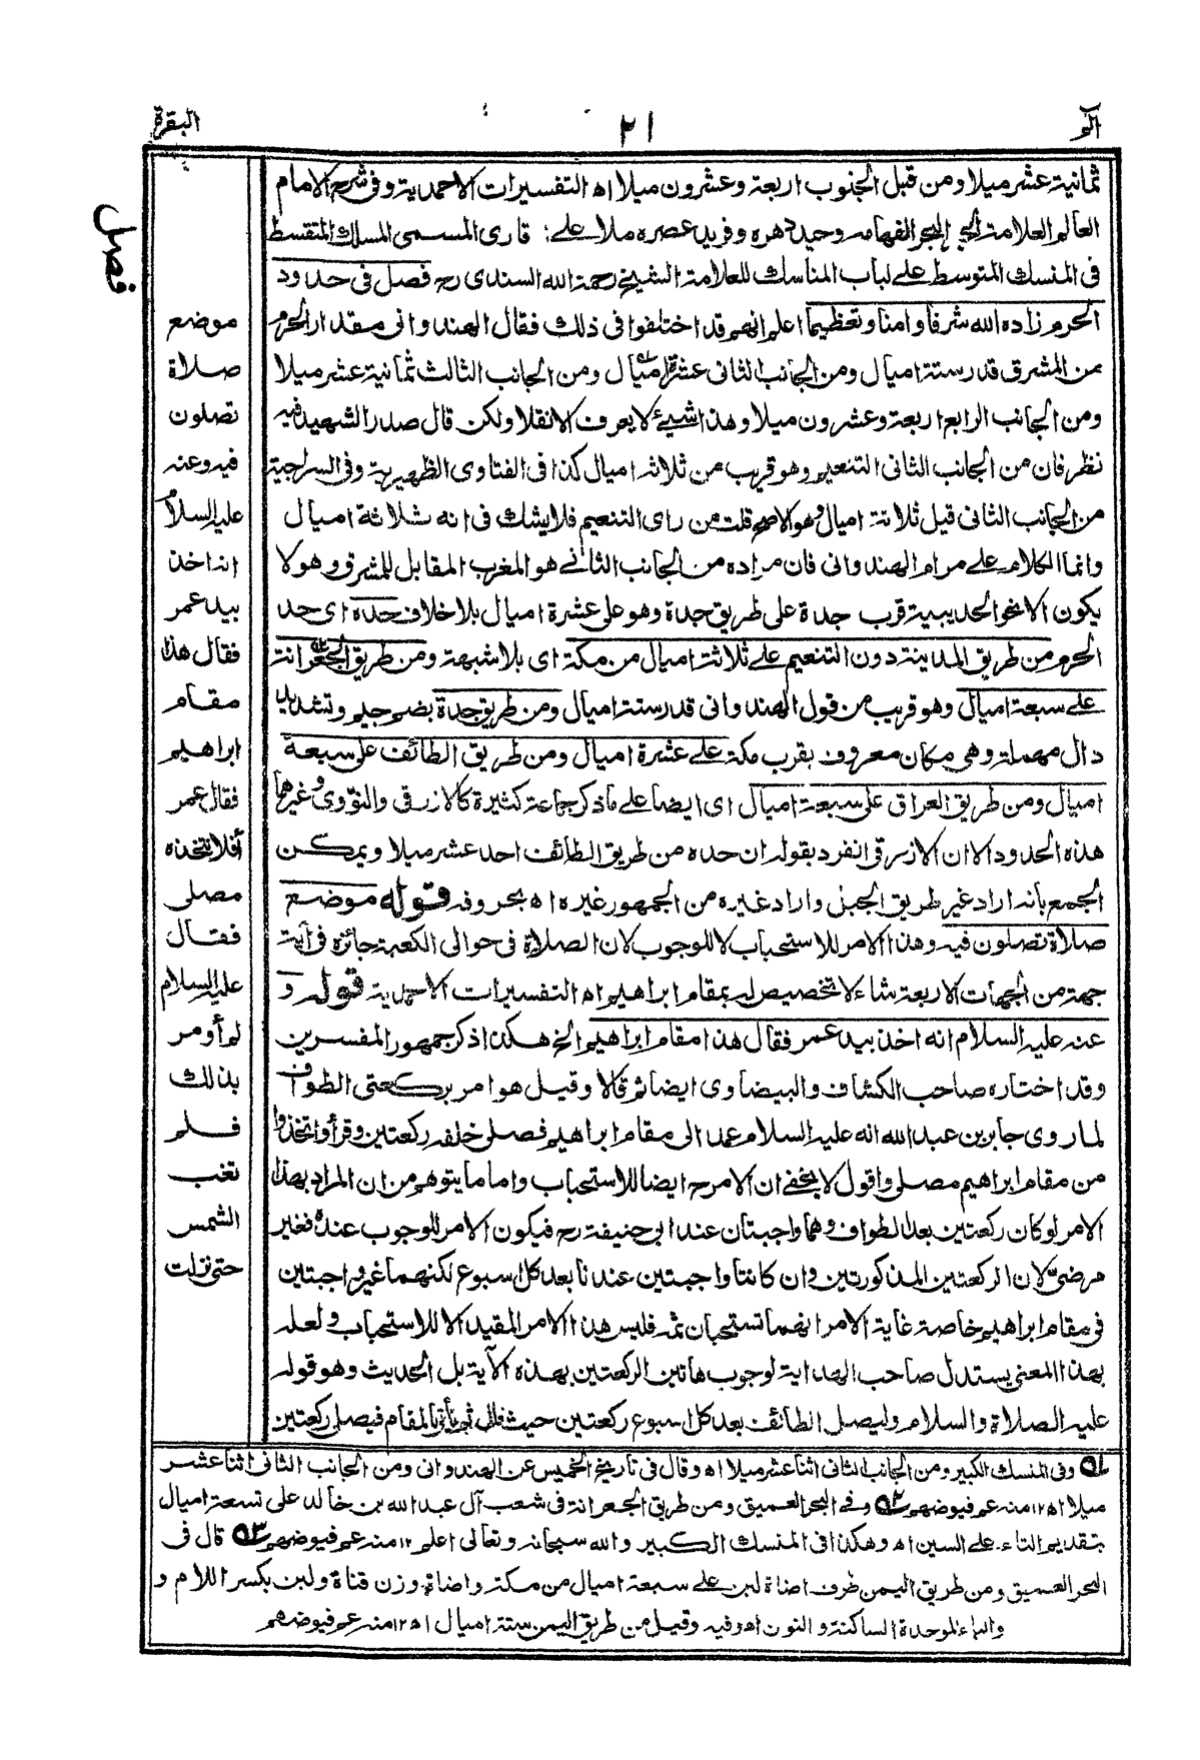 الم
٢١
البقرة
ثمانية عشر ميلا ومن قبل الجنوب اربعة وعشرون ميلا اه التفسيرات الاحمدية وفى شرح الامام
العالم العلامة الحبر البحر الفهامه وحيد دهره وفريد عصره ملا على قارى المسمى المسلك المتقسط
فى المنسك المتوسط على لباب المناسك للعلامة الشيخ رحمة الله السندى رح فصل فى حدود
الحرم زاده الله شرفا وامنا وتعظيما اعلم انهم قد اختلفوا فى ذلك فقال الهندوانى مقدار الحرم
من المشرق قدر ستة اميال ومن الجانب الثانى عشرة اميال ومن الجانب الثالث ثمانية عشر ميلا
ومن الجانب الرابع اربعة وعشرون ميلا وهذا شيئ لا يعرف الا نقلا ولكن قال صدر الشهيد فيه
نظر فان من الجانب الثانى التنعيم وهو قريب من ثلاثه اميال كذا فى الفتاوى الظهيرية وفى السراجية
من الجانب الثانى قيل ثلاثة اميال وهو الاصح قلت من راى التنعيم فلا يشك فى انه ثلاثة اميال
وانما الكلام على مرام الهندوانى فان مراده من الجانب الثانى هو المغرب المقابل للمشرق وهو لا
يكون الا نحو الحديبية قرب جدة على طريق جدة وهو على عشرة اميال بلا خلاف حده اى حد
الحرم من طريق المدينة دون التنعيم على ثلاثة اميال من مكة اى بلا شبهة ومن طريق الجعرانة
على سبعة اميال وهو قريب من قول الهندوانى قدر ستة اميال ومن طريق جدة بضم جيم وتشديد
دال مهملة وهى مكان معروف بقرب مكة على عشرة اميال ومن طريق الطائف على سبعة
اميال ومن طريق العراق على سبعة اميال اى ايضا على ما ذكر جماعة كثيرة كالازرقى والنووى وغيرهما
هذه الحدود الا ان الازرقى انفرد بقوله ان حده من طريق الطائف احد عشر ميلا ويمكن
الجمع بانه اراد غير طريق الجبل واراد غيره من الجمهور غيره اه بحروفه قوله موضع
صلاة تصلون فيه وهذا الامر للاستحباب لا للوجوب لان الصلاة فى حوالى الكعبة جائزة فى آية
جهة من الجهات الاربعة شاء لا تخصيص له بمقام ابراهيم اه التفسيرات الاحمدية قوله و
عنه عليه السلام انه اخذ بيد عمر فقال هذا مقام ابراهيم الخ هكذا ذكر جمهور المفسرين
وقد اختاره صاحب الكشاف والبيضاوى ايضا ثم قالا وقيل هو امر بركعتى الطواف
لما روى جابر بن عبد الله انه عليه السلام عمد الى مقام ابراهيم فصلى خلفه ركعتين وقرأ واتخذوا
من مقام ابراهيم مصلى واقول لا يخفى ان الامر ح ايضا للاستحباب واما ما يتوهم من ان المراد بهذا
الامر لو كان ركعتين بعد الطواف وهما واجبتان عند ابى حنيفة رح فيكون الامر للوجوب عنده فغير
مرضى لان الركعتين المذكورتين وان كانتا واجبتين عندنا بعد كل اسبوع لكنهما غير واجبتين
فى مقام ابراهيم خاصة غاية الامر انهما تستحبان ثمه فليس هذا الامر المقيد الا للاستحباب ولعله
بهذا المعنى يستدل صاحب الهداية لوجوب هاتين الركعتين بهذه الآية بل الحديث وهو قوله
عليه الصلاة والسلام وليصل الطائف بعد كل اسبوع ركعتين حيث قال ثم يأتى المقام فيصلى ركعتين
فصل
موضع
صلاة
تصلون
فيه وعنه
عليه السلام
انه اخذ
بيد عمر
فقال هذا
مقام
ابراهيم
فقال عمر
أفلا نتخذه
مصلى
فقال
عليه السلام
لم أومر
بذلك
فلم
تغب
الشمس
حتى نزلت
له١ وفى المنسك الكبير ومن الجانب الثانى اثنا عشر ميلا اه وقال فى تاريخ الخميس عن الهندوانى ومن الجانب الثانى اثنا عشر
ميلا اه ١٢ منه عم فيوضهم له٢ وفى البحر العميق ومن طريق الجعرانة فى شعب آل عبد الله بن خالد على تسعة اميال
بتقديم التاء على السين اه وهكذا فى المنسك الكبير والله سبحانه وتعالى اعلم ١٢ منه عم فيوضهم له٣ قال فى
البحر العميق ومن طريق اليمن طرف اضاة لبن على سبعة اميال من مكة واضاة وزن قناة ولبن بكسر اللام و
والباء الموحدة الساكنة والنون اه وفيه وقيل من طريق اليمن ستة اميال اه ١٢ منه عم فيوضهم